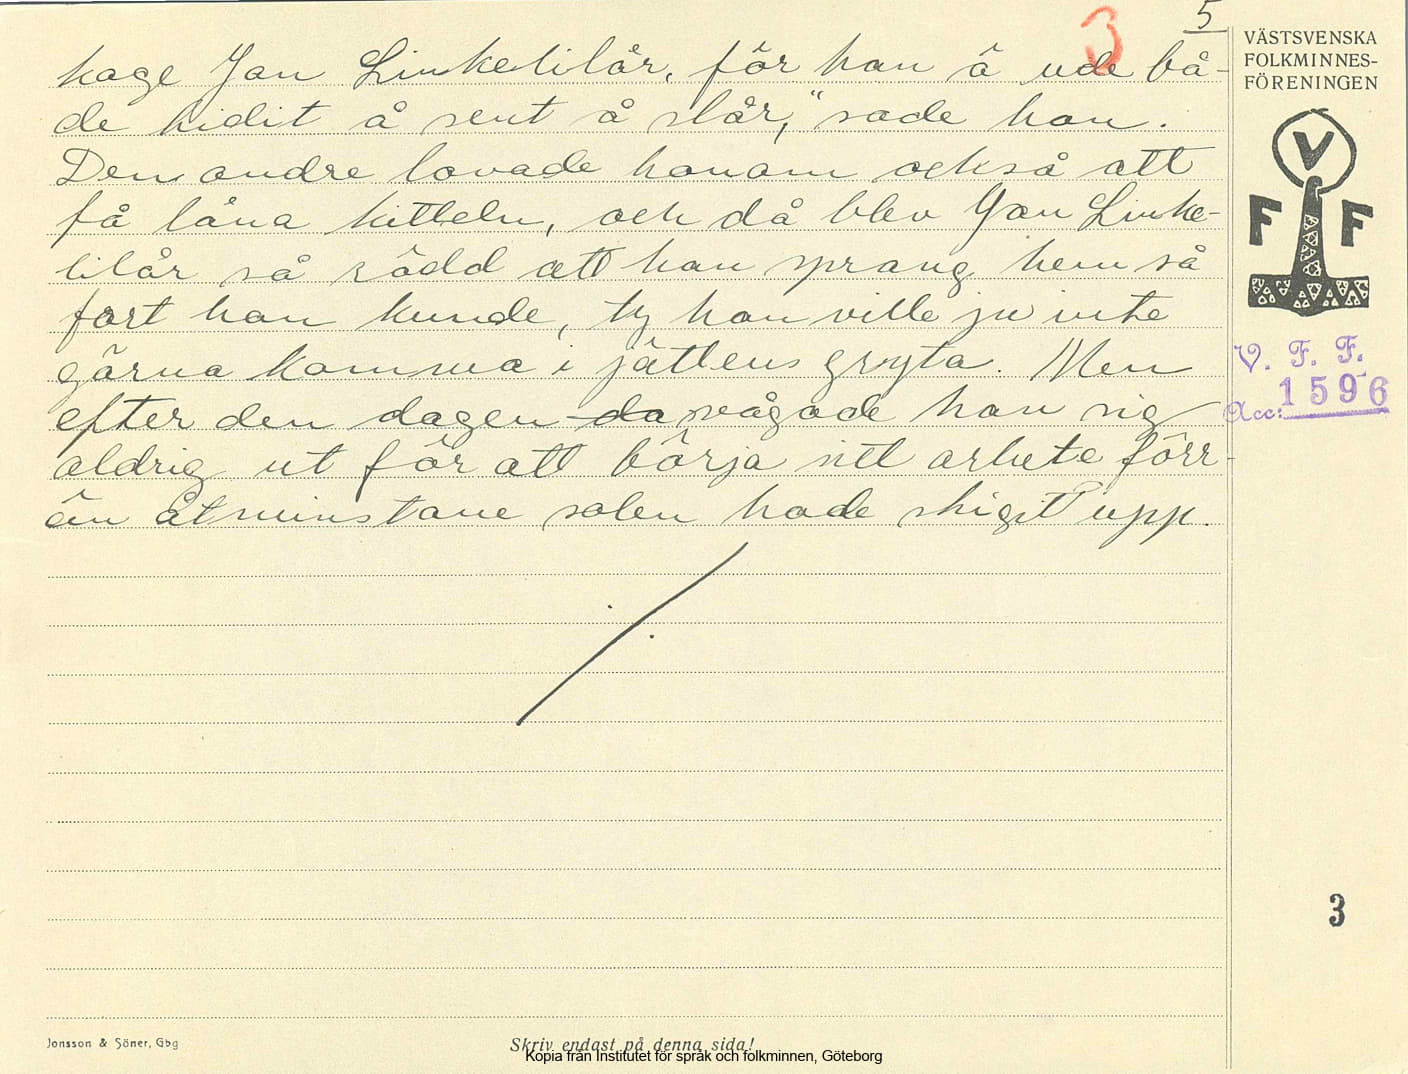 5
3
koge Jan Linkelilår, för han â ude bå-
de hidit å sent å slår," sade han.
Den andre lovade honom också att
få låna kitteln, och då blev Jan Linke-
lilår så rädd att han sprang hem så
fort han kunde, ty han ville ju inte
gärna komma i jättens gryta. Men
efter den dagen da vågade han sig
aldrig ut för att börja sitt arbete förr-
än åtminstone solen hade stigit upp.
VÄSTSVENSKA
FOLKMINNES-
FÖRENINGEN
V
F F
V. F. F.
Acc: 1596
3
Jonsson & Söner, Gbg
Skriv endast på denna sida!
Kopia från Institutet för språk och folkminnen, Göteborg